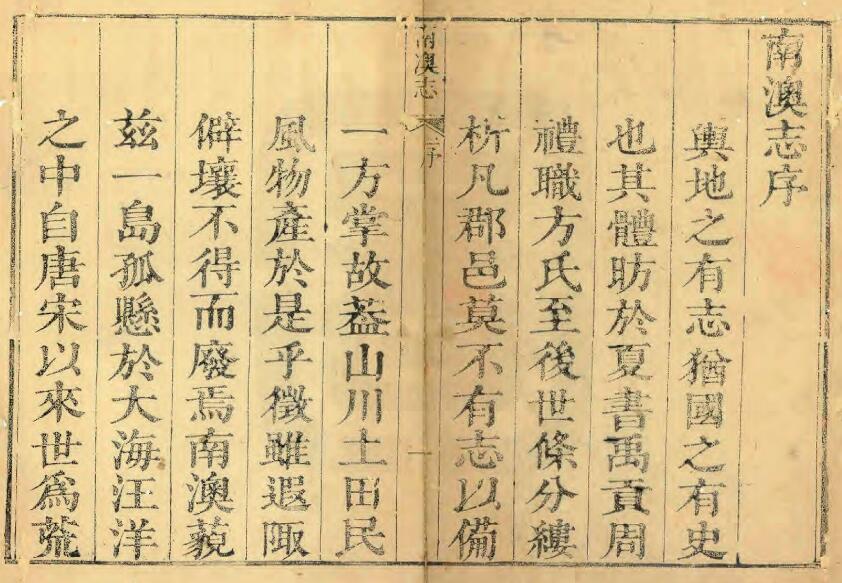 南澳志序
輿地之有志猶國之有史
也其體昉於夏書禹貢周
禮職方氏至後世條分縷
析凡郡邑莫不有志以備
南澳志
序
一
一方掌故葢山川土田民
風物產於是乎徵雖遐陬
僻壤不得而廢焉南澳藐
茲一島孤懸於大海汪洋
之中自唐宋以來世爲荒